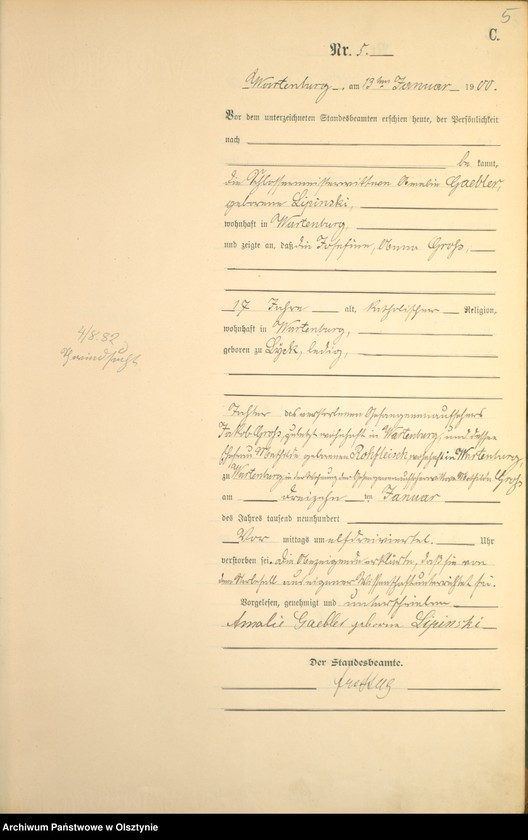 5
C.
Nr. 5.
Wartenburg am 13ten Januar 1900.
Vor dem unterzeichneten Standesbeamten erschien heute, der Persönlichkeit
nach
be kannt,
die Schlossermeisterwittwe Amalie Gaebler,
geborene Lipinski,
wohnhaft in Wartenburg,
und zeigte an, daß die Josefine, Anna Groß,
17 Jahre alt, katholischer Religion,
wohnhaft in Wartenburg,
geboren zu Lyck, ledig,
4/8.82
Schwindsucht
Tochter des verstorbenen Gefangenenaufsehers
Jakob Groß, zuletzt wohnhaft in Wartenburg, und dessen
Ehefrau Mathilde geborenen Rohfleisch, wohnhaft in Wartenburg,
zu Wartenburg in der Wohnung der Gefangenenaufseherwittwe Mathilde Groß
am dreizehn ten Januar
des Jahres tausend neunhundert
Vor mittags um elfdreiviertel Uhr
verstorben sei. Die Anzeigende erklärte, daß sie von
dem Sterbefall aus eigener Wissenschaft unterrichtet sei.
Vorgelesen, genehmigt und unterschrieben
Amalie Gaebler geborene Lipinski
Der Standesbeamte.
Archiwum Państwowe w Olsztynie